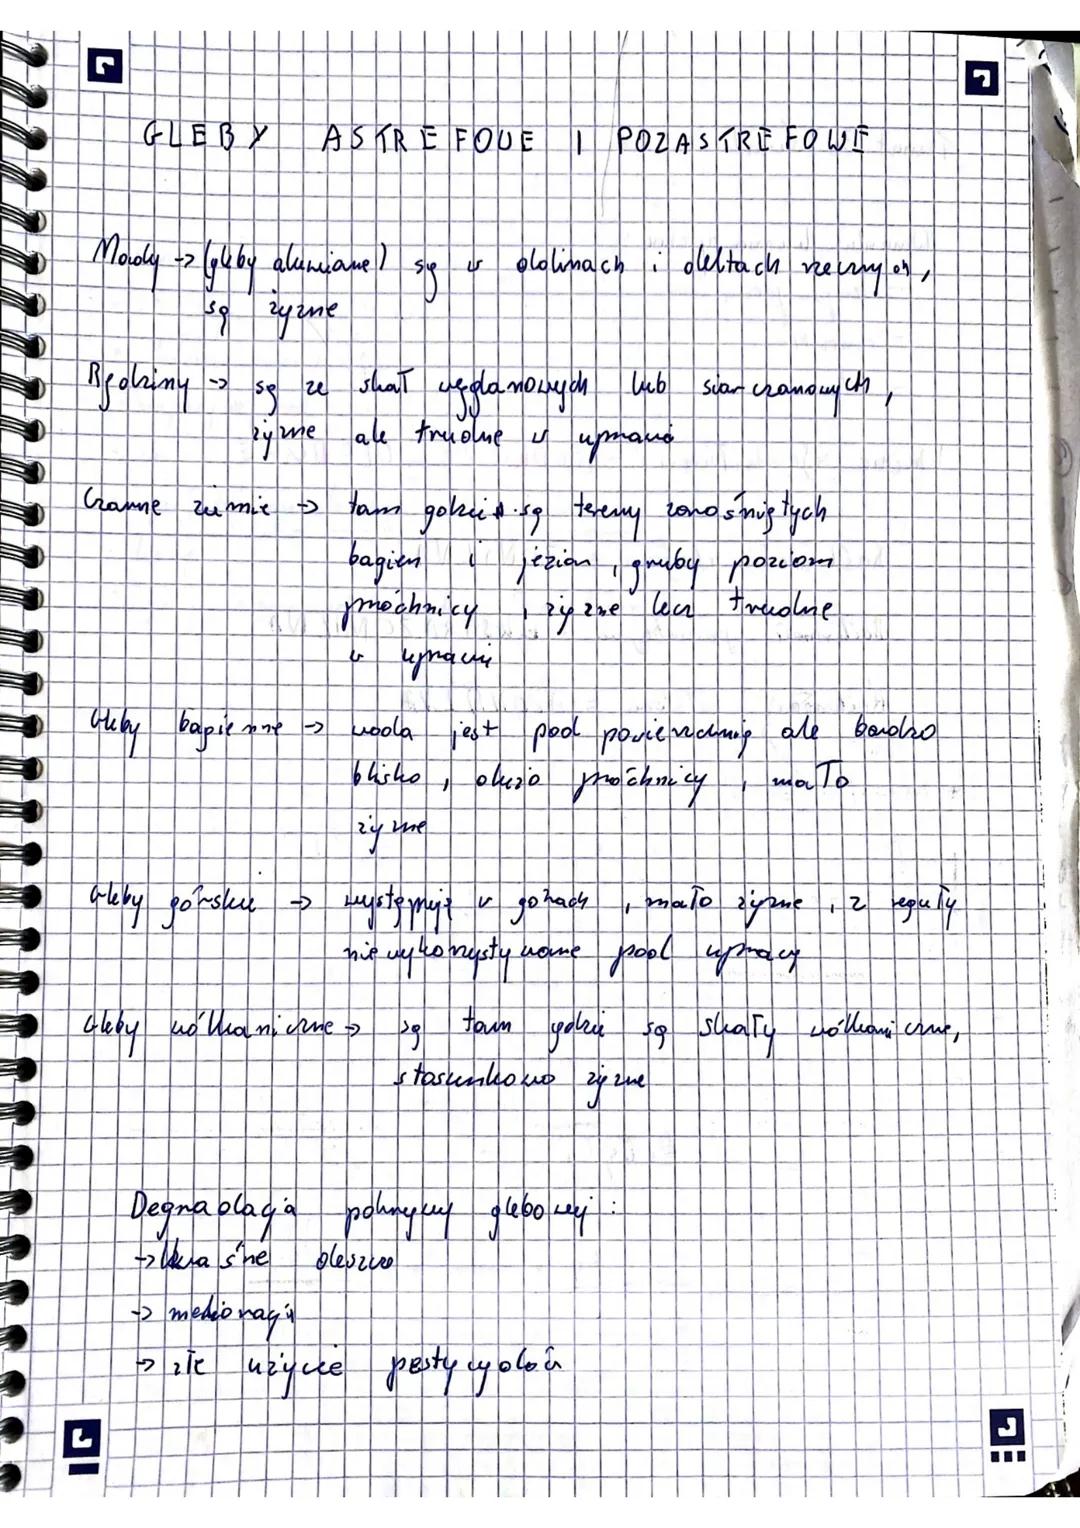 GLEBY ASTREFOWE I POZASTREFOWE
Mady -> (gleby aluwialne) są w dolinach i deltach rzecznych,
są żyzne
Rędziny -> są ze skał węglanowych lub siarczanowych,
żyzne ale trudne w uprawie
Czarne ziemie -> tam gdzie są tereny zarośniętych
bagien i jezior, gruby poziom
próchnicy, żyzne lecz trudne
w uprawie
Gleby bagienne -> woda jest pod powierzchnią ale bardzo
blisko, dużo próchnicy, mało
żyzne
Gleby górskie -> występują w górach, mało żyzne, z reguły
nie wykorzystywane pod uprawy
Gleby wólkaniczne -> są tam gdzie są skały wólkaniczne,
stosunkowo żyzne
Degradacja pokrywy glebowej:
-> kwaśne deszcze
-> melioracja
-> złe użycie pestycydów